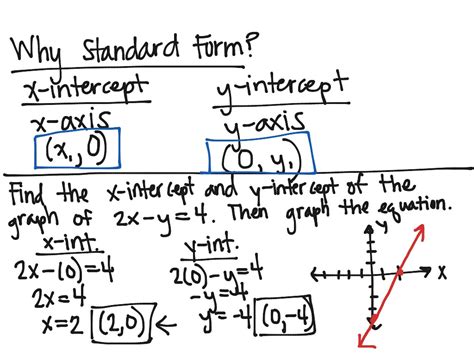 Why Standard Form?
x-intercept y-intercept
x-axis y-axis
(x₁, 0) (0, y₁)
Find the x-intercept and y-intercept of the
graph of 2x-y=4. Then graph the equation.
x-int. y-int. y
2x-(0)=4 2(0)-y=4 x
2x=4 -y=4
x=2 (2,0) ← y=-4 (0,-4)